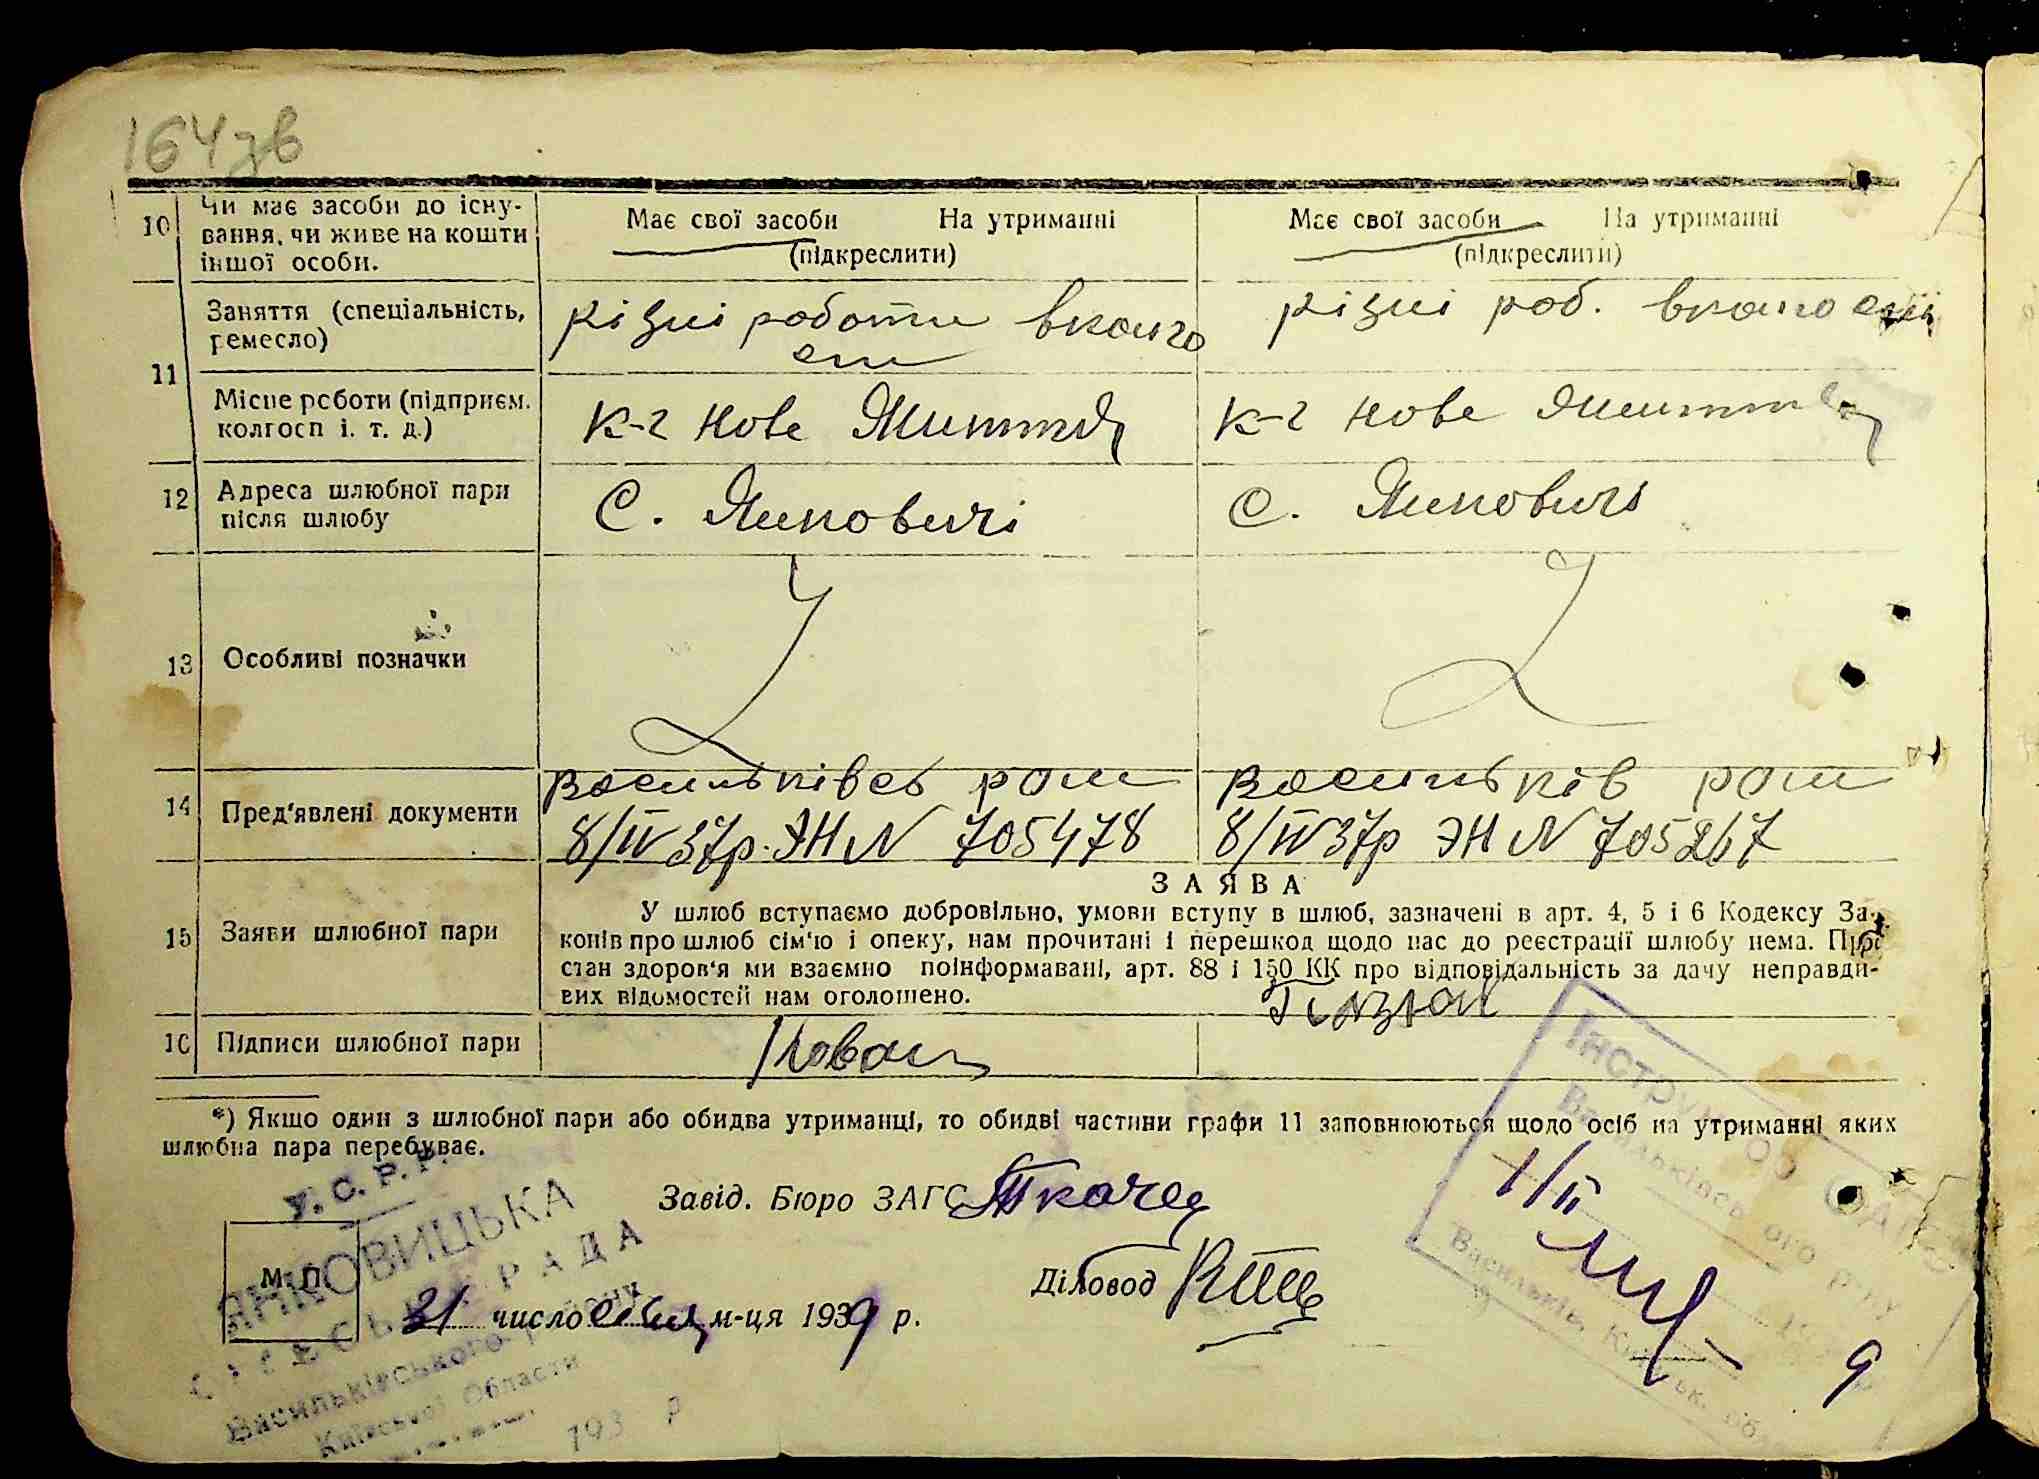 164зв
10 Чи має засоби до існу-
вання, чи живе на кошти
іншої особи.
Має свої засоби На утриманні
(підкреслити)
Має свої засоби На утриманні
(підкреслити)
11 Заняття (спеціальність,
ремесло)
різні роботи
різні роб.
Місце роботи (підприєм.
колгосп і. т. д.)
к-г нове Життя
к-г нове Життя
12 Адреса шлюбної пари
після шлюбу
С. Янковичі
С. Янковичі
13 Особливі позначки
14 Пред'явлені документи
Васильківсь ром
8/IV 37р. ЭН N 705478
Васильків ром
8/IV 37р ЭН N 705267
15 Заяви шлюбної пари
ЗАЯВА
У шлюб вступаємо добровільно, умови вступу в шлюб, зазначені в арт. 4, 5 і 6 Кодексу За-
конів про шлюб сім'ю і опеку, нам прочитані і перешкод щодо нас до реєстрації шлюбу нема. Про
стан здоров'я ми взаємно поінформавані, арт. 88 і 150 КК про відповідальність за дачу неправди-
вих відомостей нам оголошено.
16 Підписи шлюбної пари
*) Якщо один з шлюбної пари або обидва утриманці, то обидві частини графи 11 заповнюються щодо осіб на утриманні яких
шлюбна пара перебуває.
Завід. Бюро ЗАГС
Діловод
М. П.
31 число січня м-ця 1939 р.
У.С.Р.Р.
ЯНКОВИЦЬКА
СІЛЬСЬКА РАДА
Васильківського району
Київської Области
193 р
Інструктор ЗАГС
Васильківського р-ну
Васильків, Київськ. обл.
1/II
9